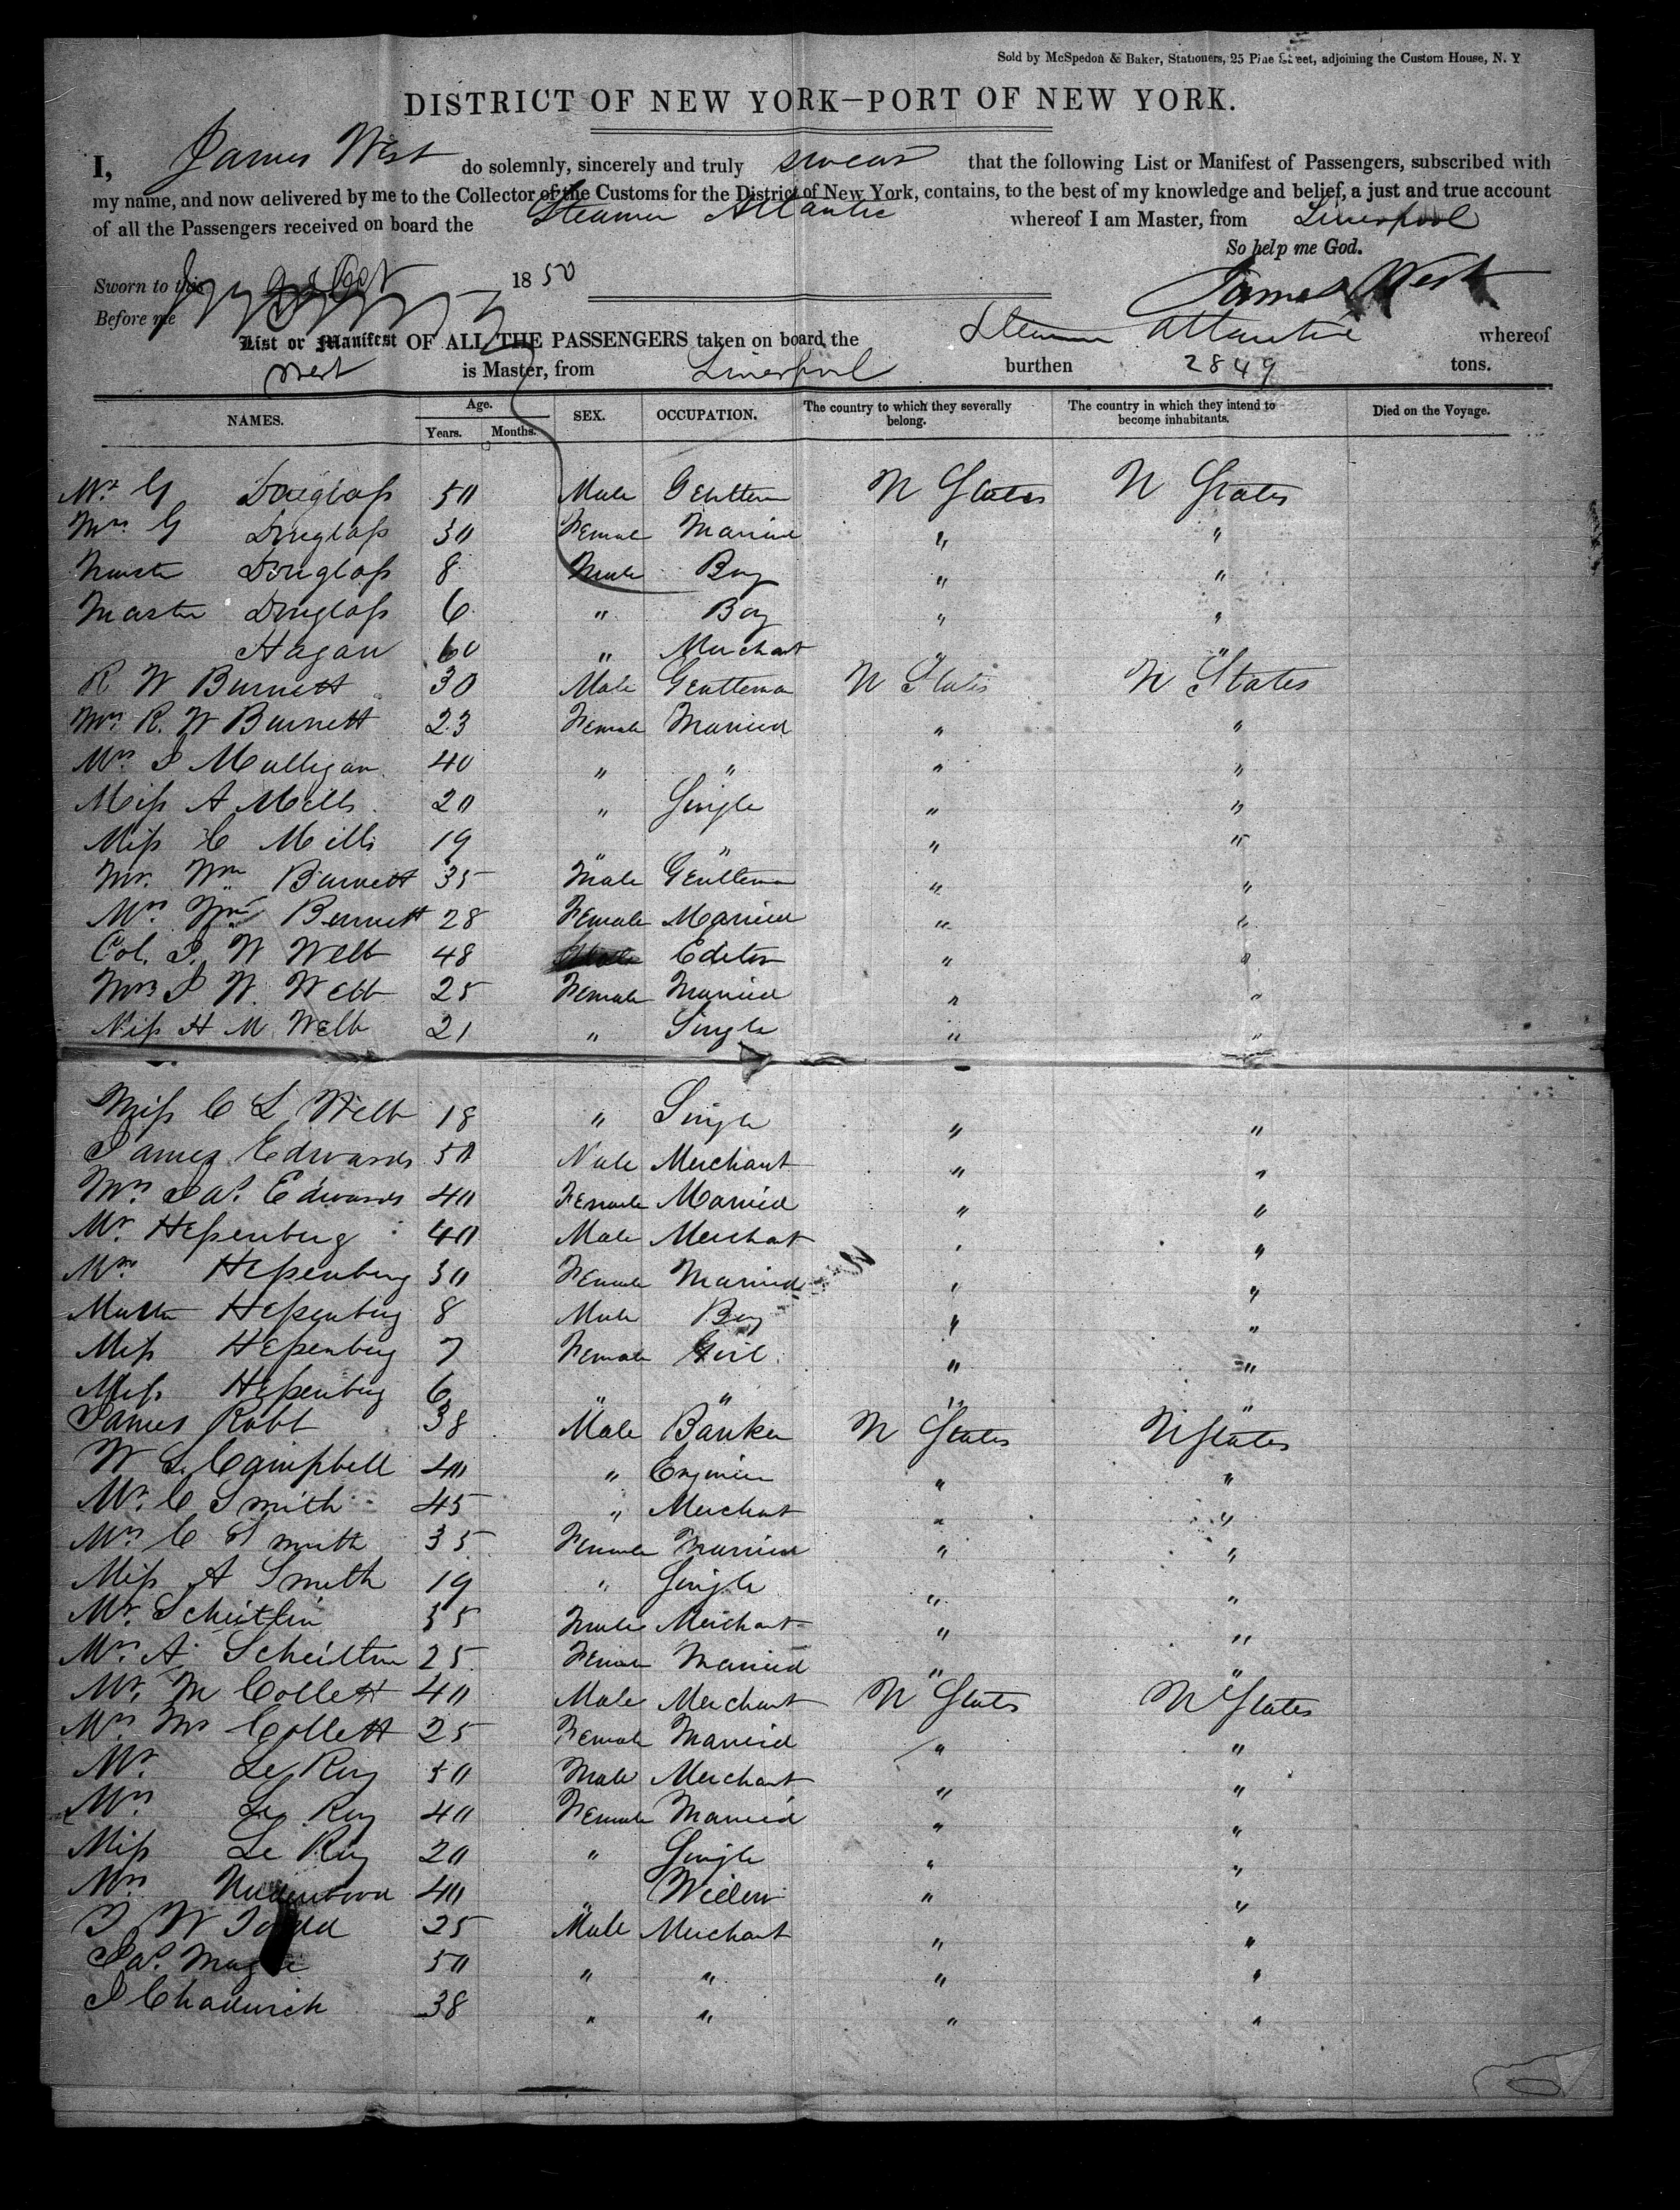 Sold by McSpedon & Baker, Stationers, 25 Pine Street, adjoining the Custom House, N. Y
DISTRICT OF NEW YORK—PORT OF NEW YORK.
I, James West do solemnly, sincerely and truly swear that the following List or Manifest of Passengers, subscribed with
my name, and now delivered by me to the Collector of the Customs for the District of New York, contains, to the best of my knowledge and belief, a just and true account
of all the Passengers received on board the Steamer Atlantic whereof I am Master, from Liverpool
So help me God.
Sworn to this Oct 1850
James West
Before me
List or Manifest OF ALL THE PASSENGERS taken on board the Steamer Atlantic whereof
West is Master, from Liverpool burthen 2849 tons.
NAMES. Age. Years. Months. SEX. OCCUPATION. The country to which they severally belong. The country in which they intend to become inhabitants. Died on the Voyage.
Mr G Douglass 50 Male Gentleman U States U States
Mrs G Douglass 30 Female Married " "
Master Douglass 8 Male Boy " "
Master Douglass 6 " Boy " "
Hagan 60 " Merchant " "
R W Burnett 30 Male Gentleman U States U States
Mrs R. W Burnett 23 Female Married " "
Mrs J Mulligan 40 " " " "
Miss A Mills 20 " Single " "
Miss C Mills 19 " " " "
Mr. Wm Burnett 35 Male Gentleman " "
Mrs Wm Burnett 28 Female Married " "
Col. J. W Webb 48 Male Editor " "
Mrs J W. Webb 25 Female Married " "
Miss H M Webb 21 " Single " "
Miss C L Webb 18 " Single " "
James Edwards 50 Male Merchant " "
Mrs Jas. Edwards 40 Female Married " "
Mr. Hessenberg 40 Male Merchant " "
Mrs Hessenberg 30 Female Married " "
Master Hessenberg 8 Male Boy " "
Miss Hessenberg 7 Female Girl " "
Miss Hessenberg 6 " " " "
James Robb 38 Male Banker U States U States
W S. Campbell 40 " Engineer " "
Mr. C Smith 45 " Merchant " "
Mrs C Smith 35 Female Married " "
Miss A Smith 19 " Single " "
Mr. Scheitlin 35 Male Merchant " "
Mrs A. Scheitlin 25 Female Married " "
Mr. M Collett 40 Male Merchant U States U States
Mrs M Collett 25 Female Married " "
Mr Le Roy 50 Male Merchant " "
Mrs Le Roy 40 Female Married " "
Miss Le Roy 20 " Single " "
Mrs Underwood 40 " Widow " "
J W 25 Male Merchant " "
Jas. 50 " " " "
J Chadwick 38 " " " "